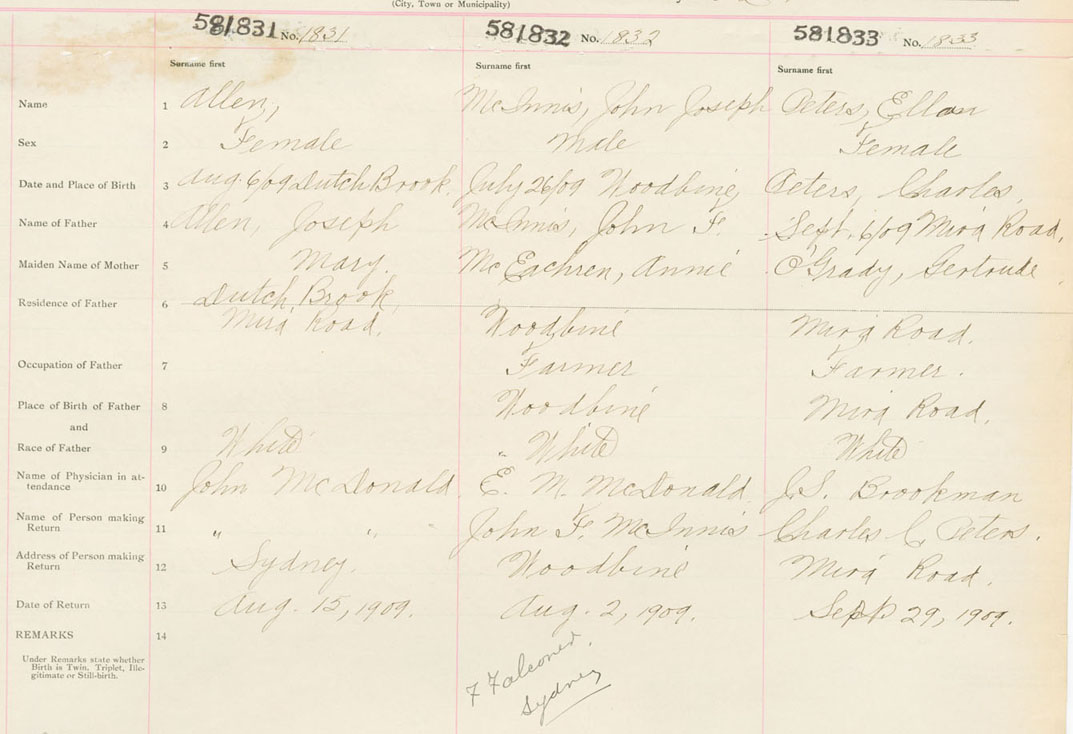 (City, Town or Municipality)
581831 No. 1831 581832 No. 1832 581833 No. 1833
Surname first Surname first Surname first
Name 1 Allen, McInnis, John Joseph Peters, Ellan
Sex 2 Female Male Female
Date and Place of Birth 3 Aug. 6/09 Dutch Brook. July 26/09 Woodbine Peters, Charles,
Name of Father 4 Allen, Joseph McInnis, John F. Sept. 6/09 Mira Road,
Maiden Name of Mother 5 Mary. McEachren, Annie O'Grady, Gertrude
Residence of Father 6 Dutch Brook,
Mira Road. Woodbine Mira Road.
Occupation of Father 7 Farmer Farmer.
Place of Birth of Father 8 Woodbine Mira Road.
and
Race of Father 9 White " White White
Name of Physician in at-
tendance 10 John McDonald E. M. McDonald J.S. Brookman
Name of Person making
Return 11 " " " John F. McInnis Charles C Peters.
Address of Person making
Return 12 Sydney. Woodbine Mira Road.
Date of Return 13 Aug. 15, 1909. Aug. 2, 1909. Sept 29, 1909.
REMARKS 14
Under Remarks state whether
Birth is Twin, Triplet, Ille-
gitimate or Still-birth.
F Falconer.
Sydney